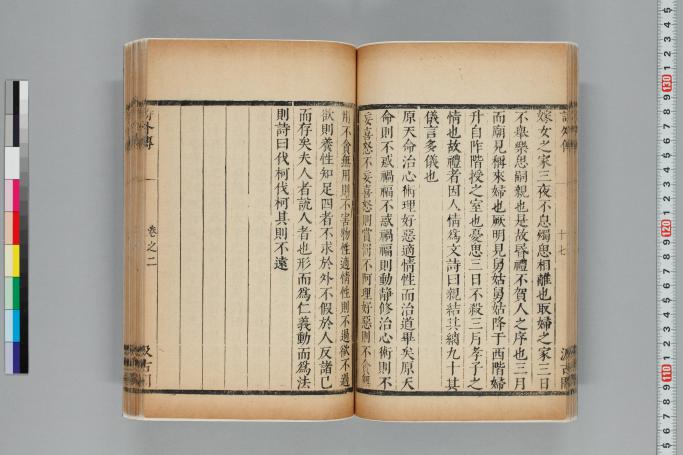 嫁女之家三夜不息燭思相離也取婦之家三日
不舉樂思嗣親也是故昏禮不賀人之序也三月
而廟見稱來婦也厥明見舅姑舅姑降于西階婦
升自阼階授之室也憂思三日不殺三月孝子之
情也故禮者因人情爲文詩曰親結其縭九十其
儀言多儀也
原天命治心術理好惡適情性而治道畢矣原天
命則不惑禍福不惑禍福則動靜修治心術則不
妄喜怒不妄喜怒則賞罰不阿理好惡則不貪無
用不貪無用則不害物性適情性則不過欲不過
欲則養性知足四者不求於外不假於人反諸己
而存矣夫人者說人者也形而爲仁義動而爲法
則詩曰伐柯伐柯其則不遠
詩外傳
卷之二
十七
汲古閣